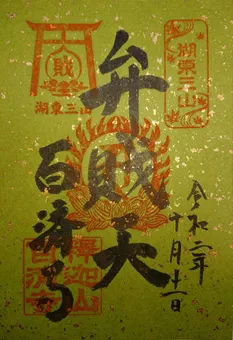 湖東三山
令和二年
十月十一日
弁戝天
湖東三山
百済寺
釋迦山
百済寺